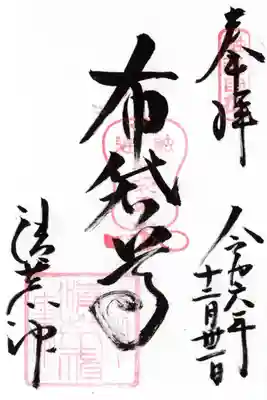 奉拝
令和六年
十二月廿一日
布袋尊
清荒神